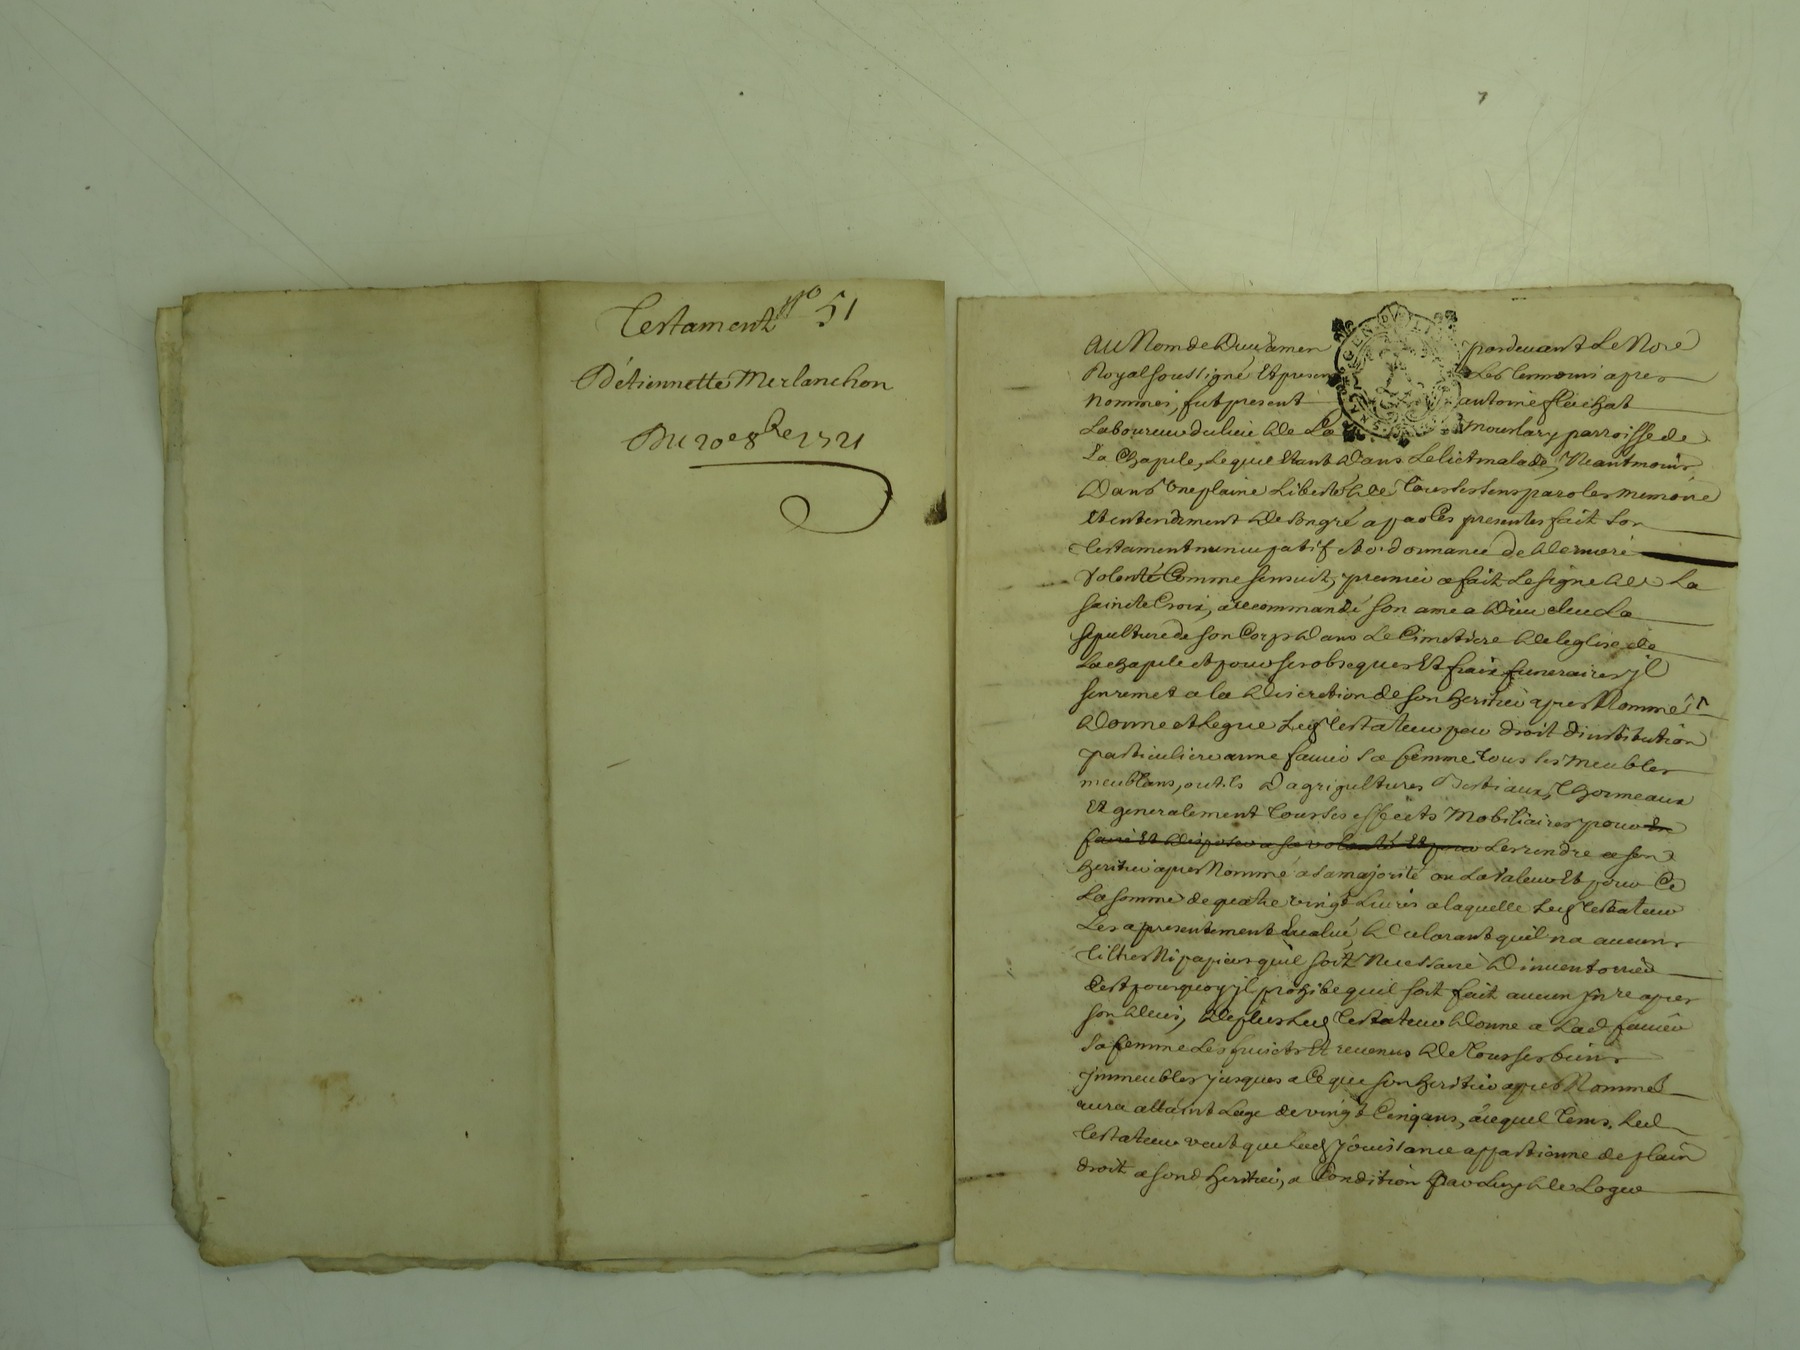 Testament N.o 51
D'étiennette Merlanchon
Du 20e 8bre 1721
Au Nom de Dieu amen pardevant Le No.re
Royal soussigné Et presens Les temoins apres
nommes, fut present antoine flachat
Laboureur du lieu de La mourlary parroisse de
La Chapele, Lequel Etant Dans Le lict malade, Neantmoins
Dans Une plaine Liberté de tous ses sens paroles memoire
Et entendement de son gré a par Ces presentes fait son
testament nuncupatif et ordonnance de derniere
volonté Comme sensuit, premier a fait Le signe de La
Saincte Croix, a recommandé son ame a Dieu elu La
sepulture de son Corps Dans Le Cimetiere de leglise de
La chapele et pour ses obseques Et fraix funeraires jl
sen remet a la Discretion de son heritier apres Nommé
Donne et Legue Led testateur par droit dinstitution
particuliere a sa femme tous ses meubles
meublans, outils D'agricultures Bestiaux,
Et generalement tous ses effects Mobiliaires pour en
faire Et Disposer a sa volonté Et pour Les rendre a son
heritier apres Nommé a sa majorité ou La valeur Et pour Ce
La somme de quatre vingt Livres a laquelle Led testateur
Les a presentement Evalué, Declarant quil na aucuns
tiltres Ni papiers quil soit Necessaire D'inventorier
Cest pourquoy jl prohibe quil soit fait aucun jnre apres
son deces, de plus Led testateur Donne a Lad
Sa femme Les fruicts Et revenus de tous ses biens
jmmeubles jusques a Ce que son heritier apres Nommé
aura attaint Lage de vingt Cinq ans, auquel tems, Led
testateur veut que Lad jouissance appartienne de plain
droit a sond heritier, a Condition par Luy de Loger